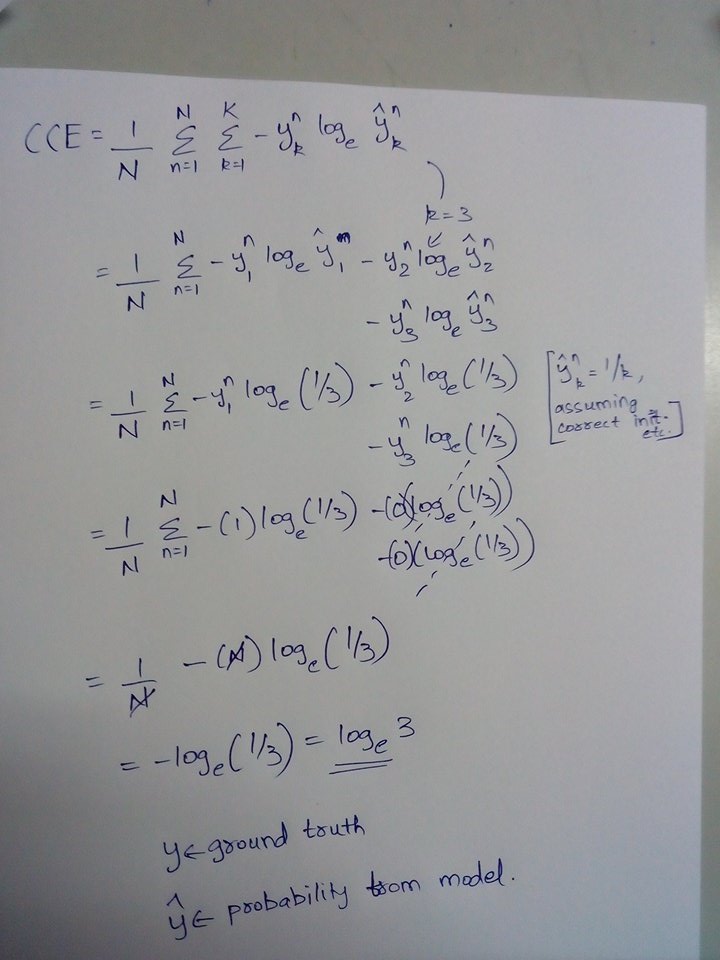 CCE = 1/N Σ_{n=1}^{N} Σ_{k=1}^{K} - y_k^n log_e ŷ_k^n
k = 3
= 1/N Σ_{n=1}^{N} - y_1^n log_e ŷ_1^n - y_2^n log_e ŷ_2^n
- y_3^n log_e ŷ_3^n
= 1/N Σ_{n=1}^{N} - y_1^n log_e (1/3) - y_2^n log_e (1/3)
- y_3^n log_e (1/3)
[ŷ_k^n = 1/k,
assuming
correct init.
etc.]
= 1/N Σ_{n=1}^{N} - (1) log_e (1/3) - (0)(log_e (1/3))
- (0)(log_e (1/3))
= 1/N - (N) log_e (1/3)
= - log_e (1/3) = log_e 3
y ← ground truth
ŷ ← probability from model.